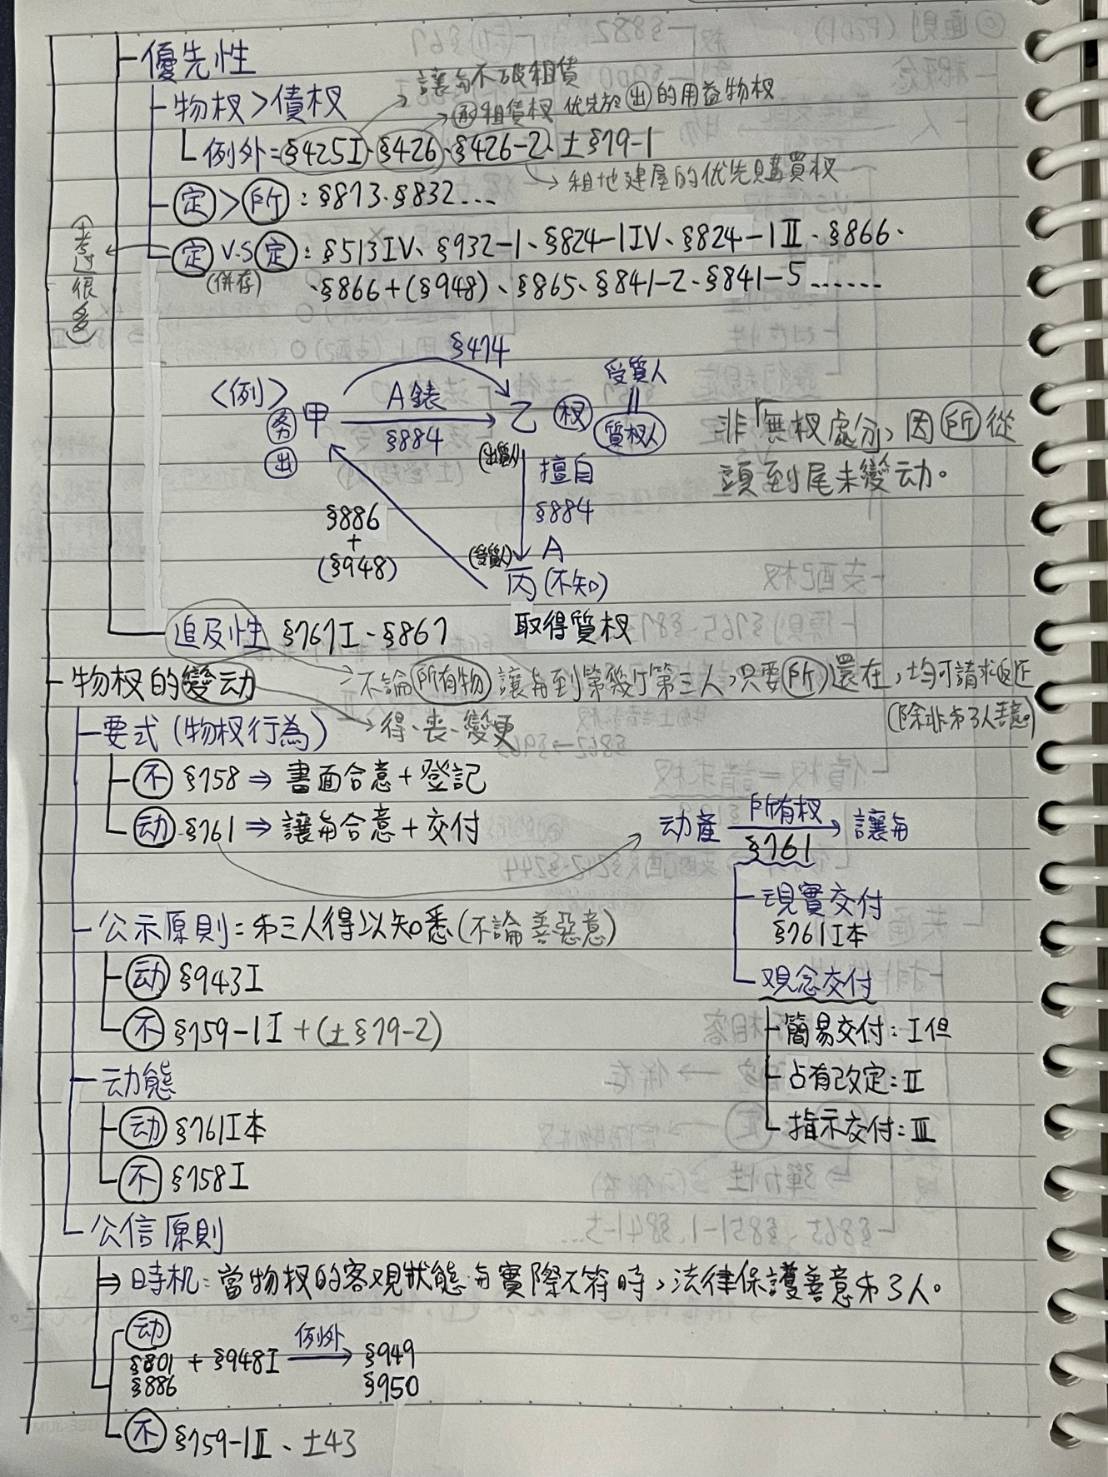 優先性
讓与不破租賃
物权＞債权
耐租賃权 优先於出的用益物权
例外=§425I、§426、§426-2、土§79-1
租地建屋的优先購買权
定＞所：§873、§832...
定 V.S 定：§513IV、§932-1、§824-1IV、§824-1II、§866、
(併存)
(考很多)
、§866+(§948)、§865、§841-2、§841-5......
§474
<例>
務 甲
A錶
乙 权
受質人
||
質权人
出
§884
(出質人)
非「無权處分」因所從
頭到尾未變动。
擅自
§884
§886
+
(§948)
(受質人)
A
丙(不知)
取得質权
追及性 §767I、§867
物权的變动
不論所有物讓与到第幾个第三人，只要所還在，均可請求返还
(除非第3人善意)
要式(物权行為)
得、丧、變更
不 §758 ⇒ 書面合意+登記
动 §761 ⇒ 讓与合意+交付
动產 所有权 → 讓与
§761
現實交付
§761I本
观念交付
簡易交付：I但
占有改定：II
指示交付：III
公示原則=第三人得以知悉(不論善惡意)
动 §943I
不 §759-1I+(土§79-2)
动態
动 §761I本
不 §758I
公信原則
⇒ 時机：當物权的客观狀態与實際不符時，法律保護善意第3人。
动
§801 + §948I 例外→ §949
§886
§950
不 §759-1II、土43